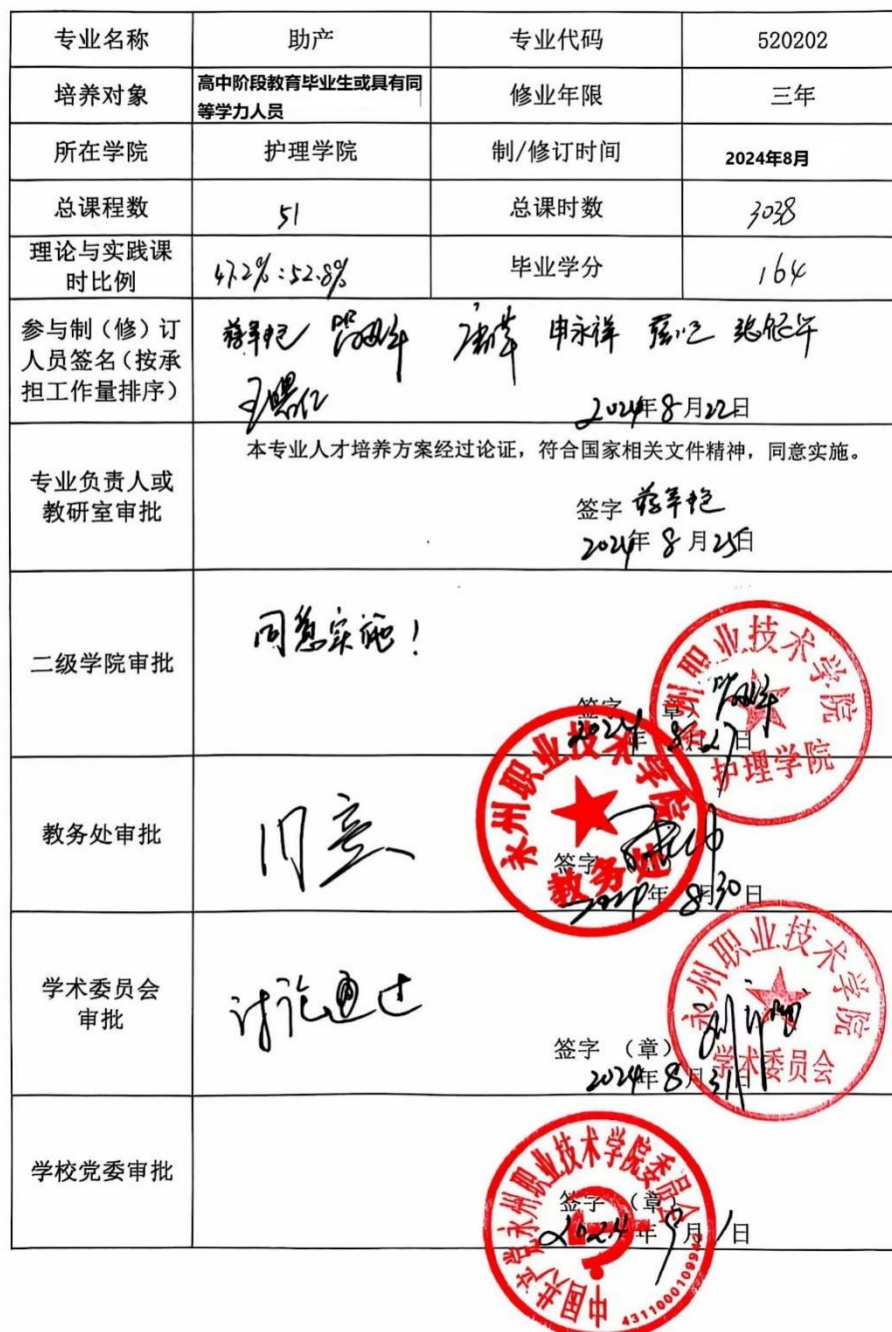 专业名称 助产 专业代码 520202
培养对象 高中阶段教育毕业生或具有同等学力人员 修业年限 三年
所在学院 护理学院 制/修订时间 2024年8月
总课程数 51 总课时数 3038
理论与实践课时比例 47.2%:52.8% 毕业学分 164
参与制（修）订人员签名（按承担工作量排序）
申永祥
2024年8月22日
专业负责人或教研室审批
本专业人才培养方案经过论证，符合国家相关文件精神，同意实施。
签字
2024年8月25日
二级学院审批
同意实施！
签字（章）
2024年8月27日
永州职业技术学院
护理学院
教务处审批
同意
签字
2024年8月30日
永州职业技术学院
教务处
学术委员会审批
讨论通过
签字（章）
2024年8月31日
永州职业技术学院
学术委员会
学校党委审批
签字（章）
2024年9月1日
中国共产党永州职业技术学院委员会